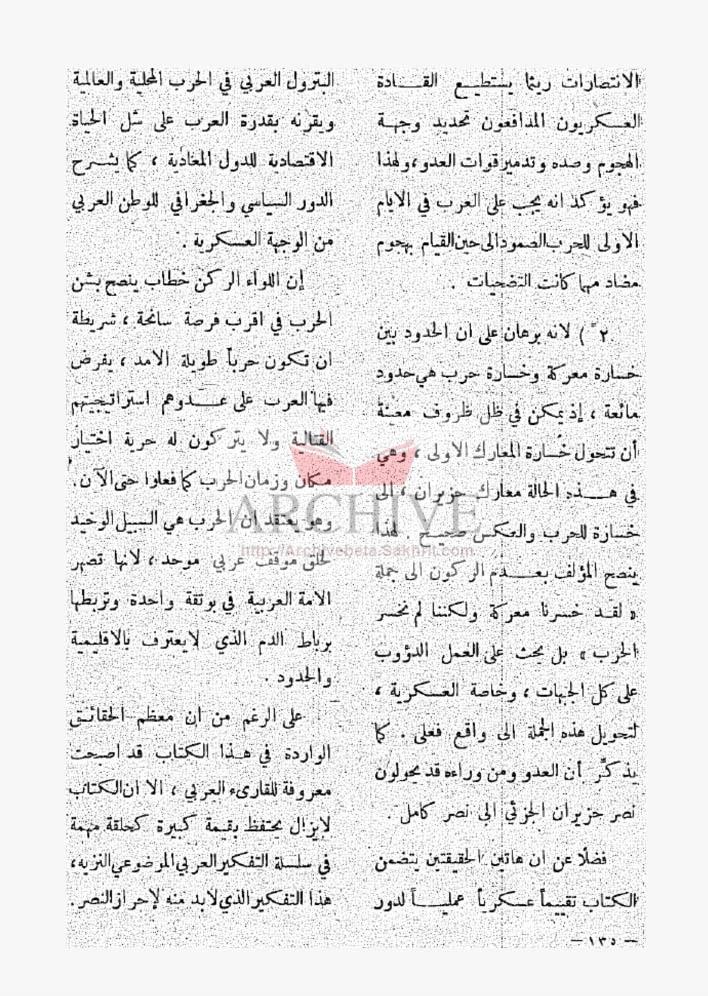 الانتصارات ريثما يستطيع القادة
العسكريون المدافعون تحديد وجهة
الهجوم وصده وتدمير قوات العدو، ولهذا
فهو يؤكد انه يجب على العرب في الايام
الاولى للحرب الصمود الى حين القيام بهجوم
مضاد مهما كانت التضحيات .
٢ً) لانه برهان على ان الحدود بين
خسارة معركة وخسارة حرب هي حدود
مائعة ، إذ يمكن في ظل ظروف معينة
أن تتحول خسارة المعارك الاولى ، وهي
في هذه الحالة معارك حزيران ، الى
خسارة للحرب والعكس صحيح . لهذا
ينصح المؤلف بعدم الركون الى جملة
« لقد خسرنا معركة ولكننا لم نخسر
الحرب » بل يحث على العمل الدؤوب
على كل الجبهات ، وخاصة العسكرية ،
لتحويل هذه الجملة الى واقع فعلي . كما
يذكّر بأن العدو ومن وراءه قد يحولون
نصر حزيران الجزئي الى نصر كامل .
فضلًا عن ان هاتين الحقيقتين يتضمن
الكتاب تقييماً عسكرياً عملياً لدور
البترول العربي في الحرب المحلية والعالمية
ويقرنه بقدرة العرب على شل الحياة
الاقتصادية للدول المعادية ، كما يشرح
الدور السياسي والجغرافي للوطن العربي
من الوجهة العسكرية .
إن اللواء الركن خطاب ينصح بشن
الحرب في اقرب فرصة سانحة ، شريطة
ان تكون حرباً طويلة الامد ، يفرض
فيها العرب على عدوهم استراتيجيتهم
القتالية ولا يتركون له حرية اختيار
مكان وزمان الحرب كما فعلوا حتى الآن.
وهو يعتقد ان الحرب هي السبيل الوحيد
لخلق موقف عربي موحد ، لانها تصهر
الامة العربية في بوتقة واحدة وتربطها
برباط الدم الذي لا يعترف بالاقليمية
والحدود .
على الرغم من ان معظم الحقائق
الواردة في هذا الكتاب قد اصبحت
معروفة للقارىء العربي ، الا ان الكتاب
لا يزال يحتفظ بقيمة كبيرة كحلقة مهمة
في سلسلة التفكير العربي الموضوعي النزيه،
هذا التفكير الذي لا بد منه لإحراز النصر.
— ١٣٥ —
ARCHIVE
http://Archivebeta.Sakhrit.com